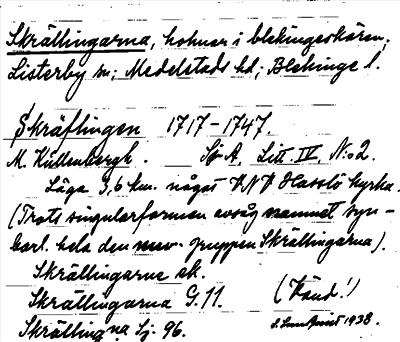 Skrällingarna, holmar i blekingeskären,
Listerby sn; Medelstads hd; Blekinge l.
Skräflingen 1717-1747.
M. Küllenbergh. Sjö A, Litt. IV, N:o 2.
Läge 3,6 km. något VNV Hasslö kyrka.
(Trots singularformen avsåg namnet syn-
barl. hela den nuv. gruppen Skrällingarna).
Skrällingarne sk.
Skrällingarna G.11. (Känd!)
Skrällingna Sj. 96. 1938.